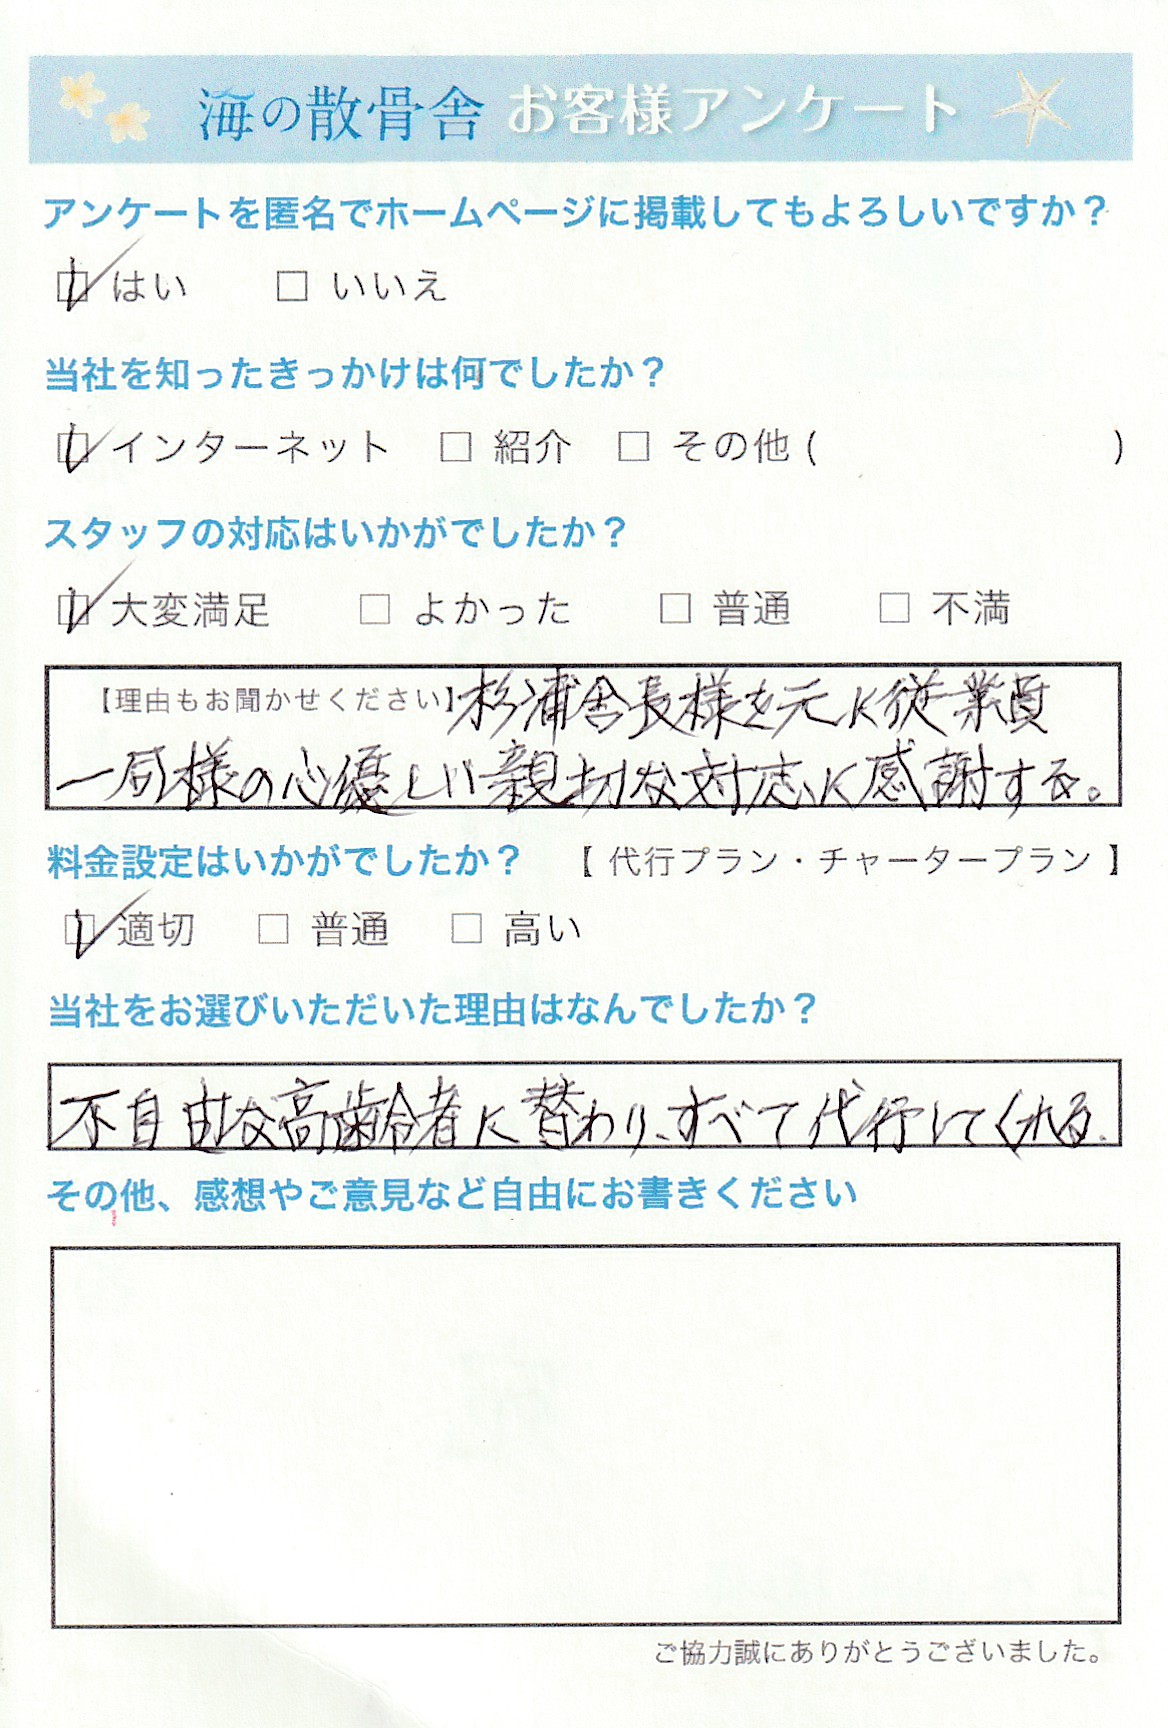 海の散骨舎 お客様アンケート
アンケートを匿名でホームページに掲載してもよろしいですか？
☑ はい □ いいえ
当社を知ったきっかけは何でしたか？
☑ インターネット □ 紹介 □ その他 ( )
スタッフの対応はいかがでしたか？
☑ 大変満足 □ よかった □ 普通 □ 不満
【理由もお聞かせください】杉浦舎長様を元に従業員
一同様の心優しい親切な対応に感謝する。
料金設定はいかがでしたか？ 【 代行プラン・チャータープラン 】
☑ 適切 □ 普通 □ 高い
当社をお選びいただいた理由はなんでしたか？
不自由な高齢者に替わり、すべて代行してくれる.
その他、感想やご意見など自由にお書きください
ご協力誠にありがとうございました。